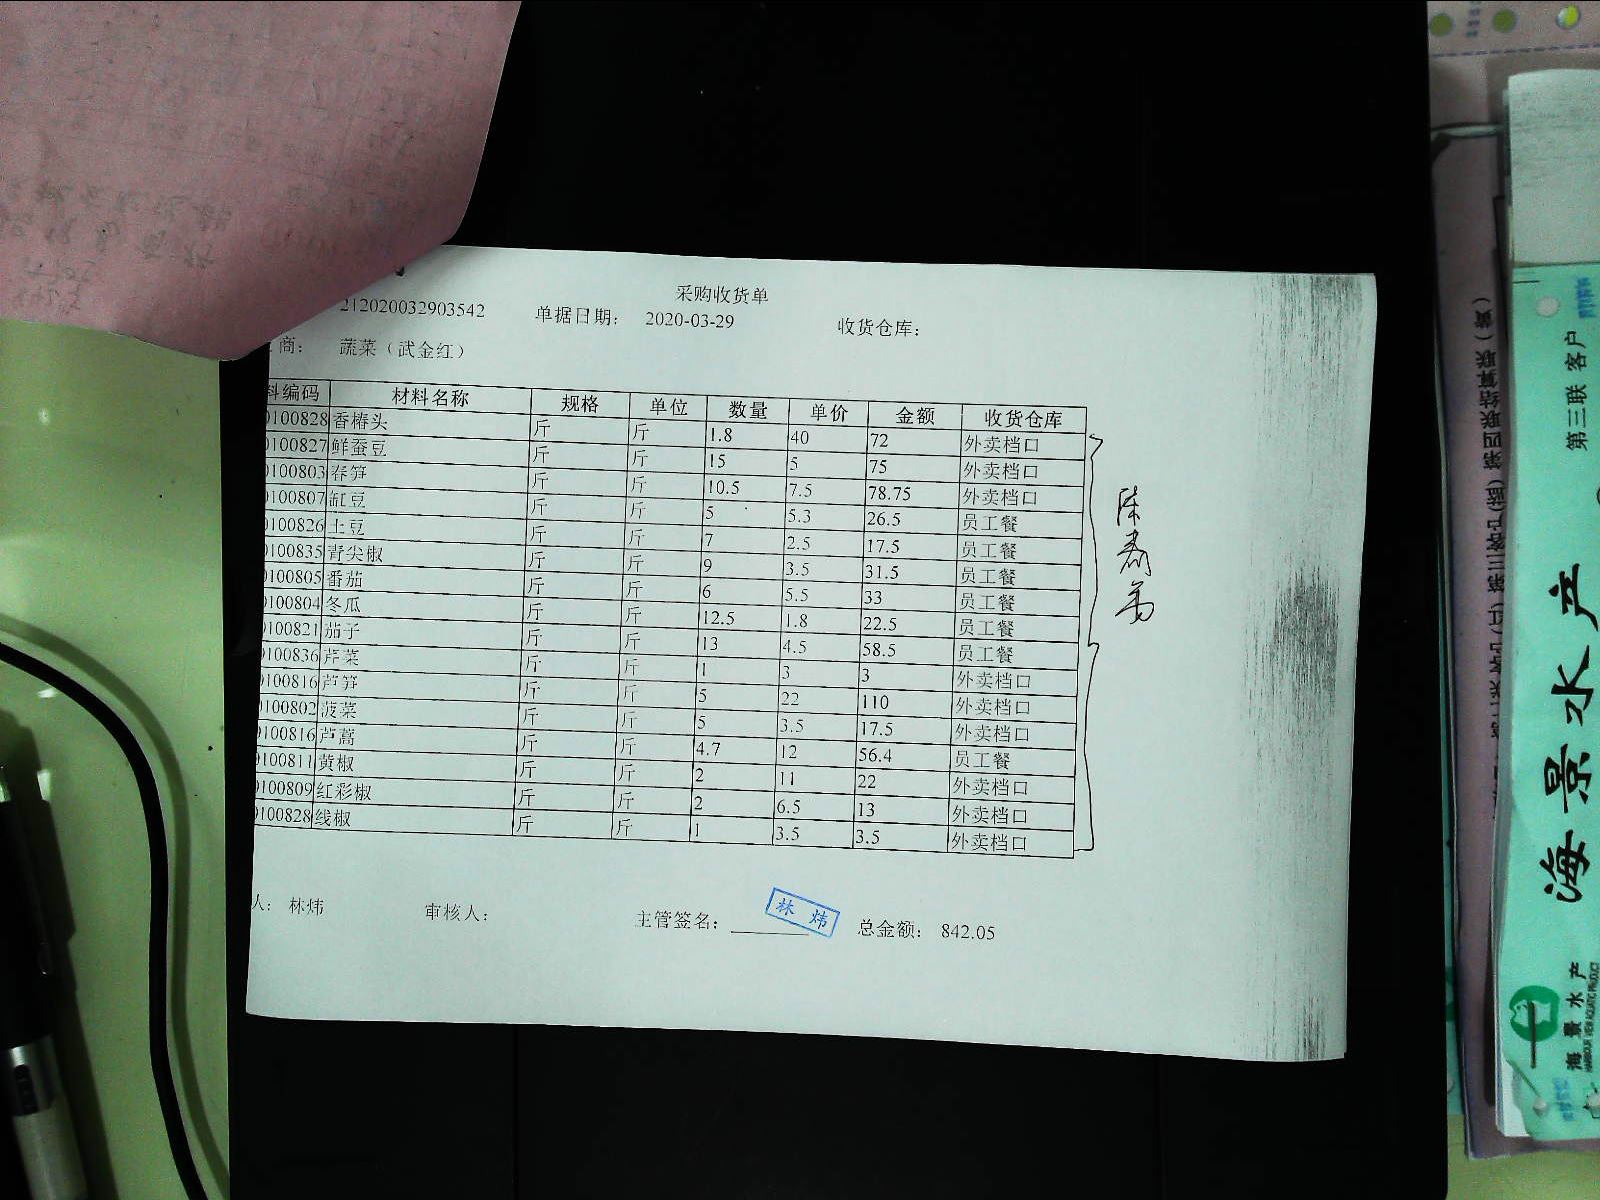 采购收货单
212020032903542 单据日期： 2020-03-29 收货仓库：
商： 蔬菜（武金红）
料编码 材料名称 规格 单位 数量 单价 金额 收货仓库
0100828 香椿头 斤 斤 1.8 40 72 外卖档口
0100827 鲜蚕豆 斤 斤 15 5 75 外卖档口
0100803 春笋 斤 斤 10.5 7.5 78.75 外卖档口
0100807 缸豆 斤 斤 5 5.3 26.5 员工餐
0100826 土豆 斤 斤 7 2.5 17.5 员工餐
0100835 青尖椒 斤 斤 9 3.5 31.5 员工餐
0100805 番茄 斤 斤 6 5.5 33 员工餐
0100804 冬瓜 斤 斤 12.5 1.8 22.5 员工餐
0100821 茄子 斤 斤 13 4.5 58.5 员工餐
0100836 芹菜 斤 斤 1 3 3 外卖档口
0100816 芦笋 斤 斤 5 22 110 外卖档口
0100802 菠菜 斤 斤 5 3.5 17.5 外卖档口
0100816 芦蒿 斤 斤 4.7 12 56.4 员工餐
0100811 黄椒 斤 斤 2 11 22 外卖档口
0100809 红彩椒 斤 斤 2 6.5 13 外卖档口
0100828 线椒 斤 斤 1 3.5 3.5 外卖档口
人： 林炜 审核人： 主管签名： 林 炜 总金额： 842.05
第三联 客户
海景水产
海景水产
HARBOUR VIEW AQUATIC PRODUCT